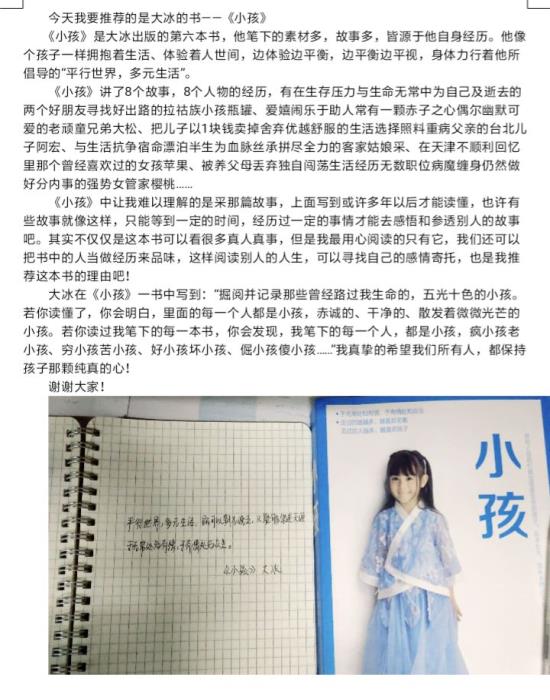 今天我要推荐的是大冰的书——《小孩》
《小孩》是大冰出版的第六本书，他笔下的素材多，故事多，皆源于他自身经历。他像
个孩子一样拥抱着生活、体验着人世间，边体验边平衡，边平衡边平视，身体力行着他所
倡导的“平行世界，多元生活”。
《小孩》讲了8个故事，8个人物的经历，有在生存压力与生命无常中为自己及逝去的
两个好朋友寻找好出路的拉祜族小孩瓶罐、爱嬉闹乐于助人常有一颗赤子之心偶尔幽默可
爱的老顽童兄弟大松、把儿子以1块钱卖掉舍弃优越舒服的生活选择照料重病父亲的台北儿
子阿宏、与生活抗争宿命漂泊半生为血脉丝承拼尽全力的客家姑娘采、在天津不顺利回忆
里那个曾经喜欢过的女孩苹果、被养父母丢弃独自闯荡生活经历无数职位病魔缠身仍然做
好分内事的强势女管家樱桃……
《小孩》中让我难以理解的是采那篇故事，上面写到或许多年以后才能读懂，也许有
些故事就像这样，只能等到一定的时间，经历过一定的事情才能去感悟和参透别人的故事
吧。其实不仅仅是这本书可以看很多真人真事，但是我最用心阅读的只有它，我们还可以
把书中的人当做经历来品味，这样阅读别人的人生，可以寻找自己的感情寄托，也是我推
荐这本书的理由吧！
大冰在《小孩》一书中写到：“掘阅并记录那些曾经路过我生命的，五光十色的小孩。
若你读懂了，你会明白，里面的每一个人都是小孩，赤诚的、干净的、散发着微微光芒的
小孩。若你读过我笔下的每一本书，你会发现，我笔下的每一个人，都是小孩，疯小孩老
小孩、穷小孩苦小孩、好小孩坏小孩、倔小孩傻小孩……”我真挚的希望我们所有人，都保持
孩子那颗纯真的心！
谢谢大家！
平行世界，多元生活
《小孩》 大冰
小孩